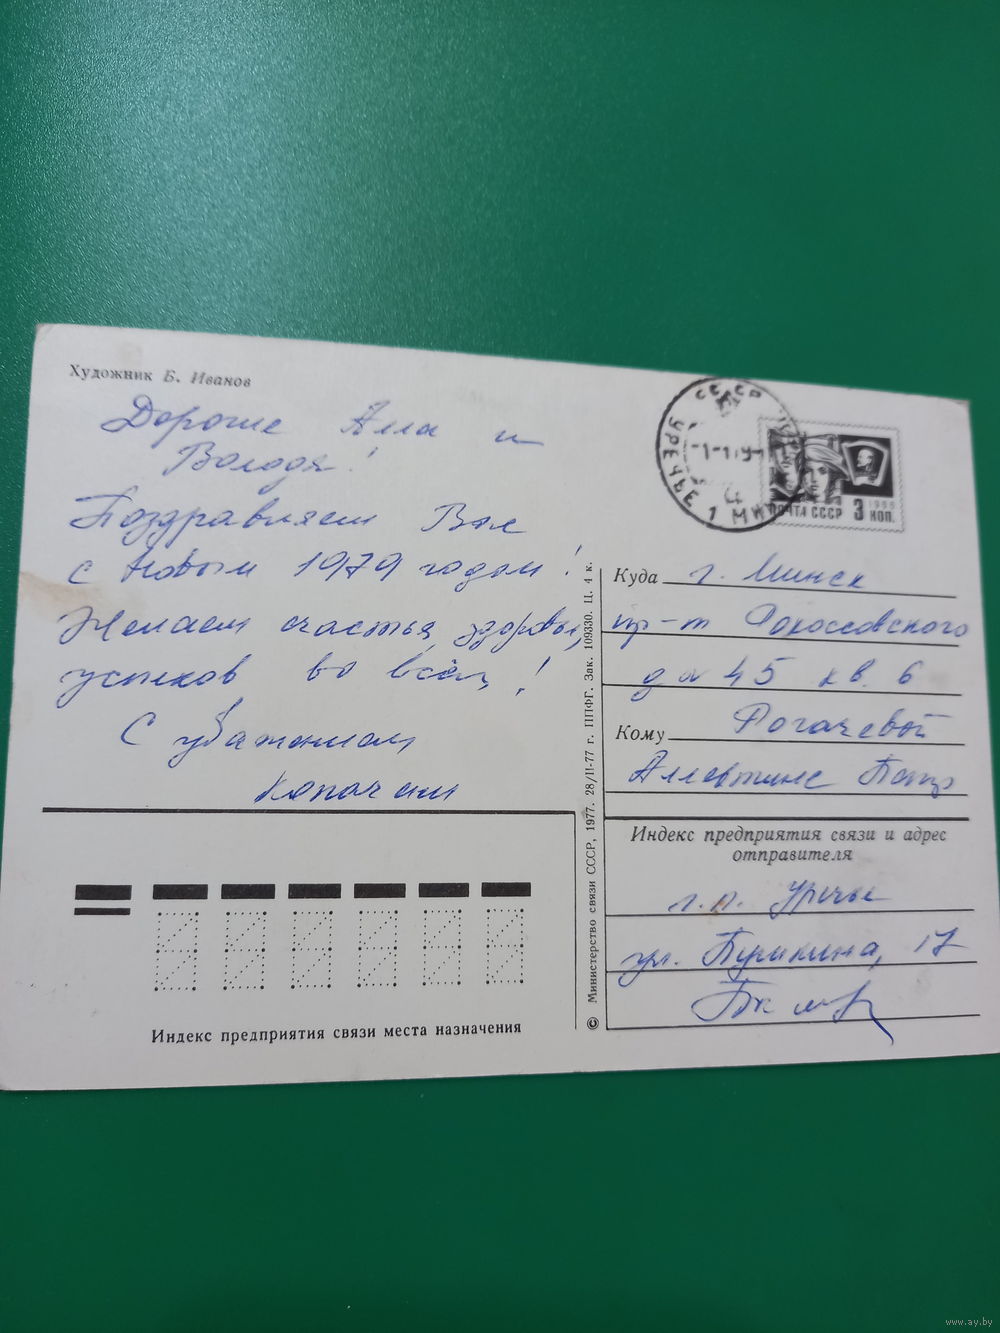 Художник Б. Иванов
Дорогие Алла и
Володя!
Поздравляем Вас
с Новым 1979 годом!
Желаем счастья, здоровья,
успехов во всём!
С уважением
СССР
УРЕЧЬЕ 1 МИН
-1-1 79-
ПОЧТА СССР 3 КОП.
1966
Куда г. Минск
пр-т Рокоссовского
д 45 кв. 6
Кому Рогачевой
Алевтине
Индекс предприятия связи и адрес
отправителя
г.п. Уречье
ул. Пушкина, 17
Индекс предприятия связи места назначения
© Министерство связи СССР, 1977. 28/II-77 г. ППФГ. Зак. 109330. Ц. 4 к.
www.ay.by